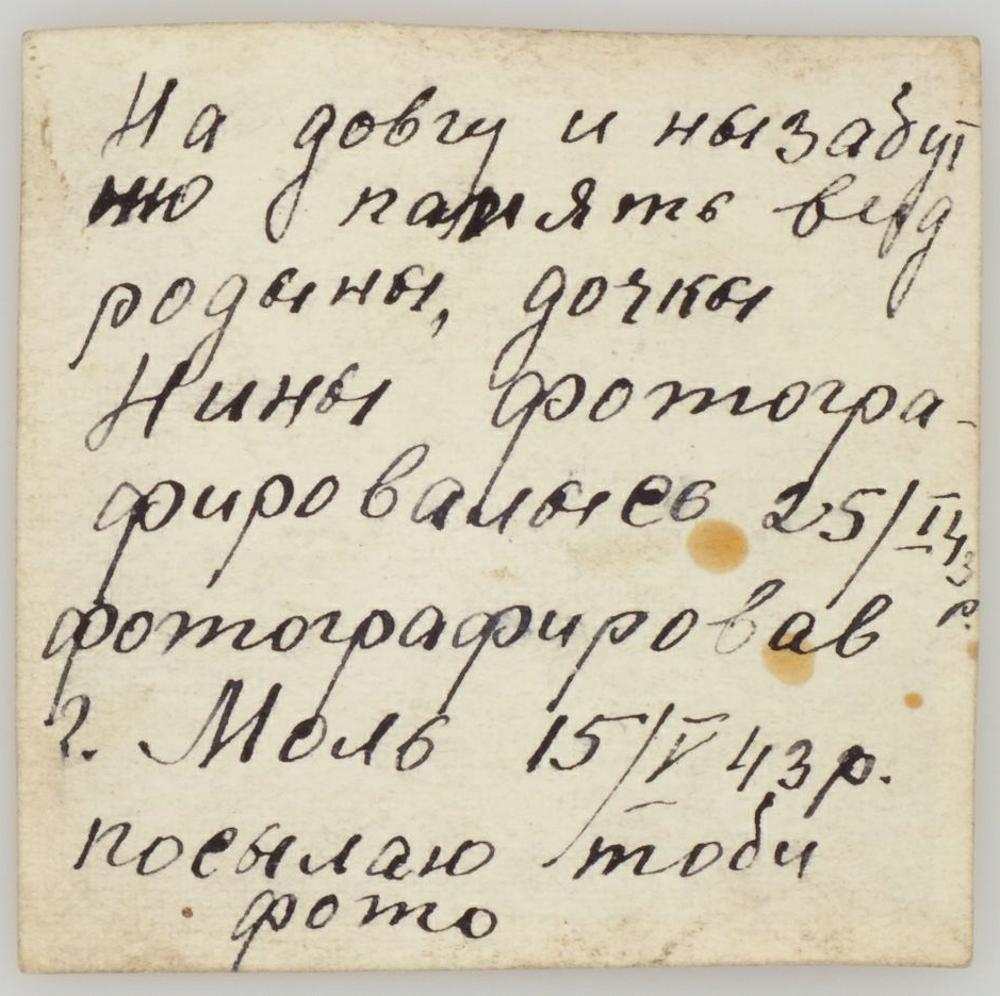 На довгу и нызабут
ню память веид
родыны, дочкы
Нины фотогра-
фировалысь 25/II 43 р.
фотографировав
г. Моль 15/V 43 р.
посылаю тоби
фото